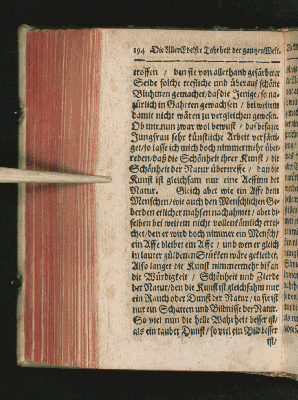 194 Die AllerEdelste Tohrheit der gantzen Welt.
troffen / den sie von allerhand gefärbeter
Seide solche treffliche und überauß schöne
Bluhmen gemachet / das die Jenige / so na-
türlich in Gahrten gewachsen / bei weitem
damit nicht wären zu vergleichen gewesen.
Ob mir nun zwar wol bewust / das besagte
Jungfrau sehr künstliche Arbeit verfärti-
get / so lasse ich mich doch nimmermehr über-
reden / daß die Schönheit ihrer Kunst / die
Schönheit der Natur übertreffe / dan die
Kunst ist gleichsam nur eine Aeffinn der
Natur. Gleich aber wie ein Affe dem
Menschen / wie auch den Menschlichen Ge-
berden etlicher mahssen nachahmet / aber die-
selben bei weitem nicht vollenkömlich errei-
chet / den er wird doch nimmer ein Mensch /
ein Affe bleibet ein Affe / und wen er gleich
in lauter güldenen Stükken wäre gekleidet.
Also langet die Kunst nimmermehr bis an
die Würdigkeit / Schönheit und Zierde
der Natur / den die Kunst ist gleichsahm nur
ein Rauch oder Dunst der Natur / ja sie ist
nur ein Schatten und Bildnisse der Natur.
So viel nun die helle Wahrheit besser ist /
als ein tauber Dunst / so viel ein Bild besser
ist /